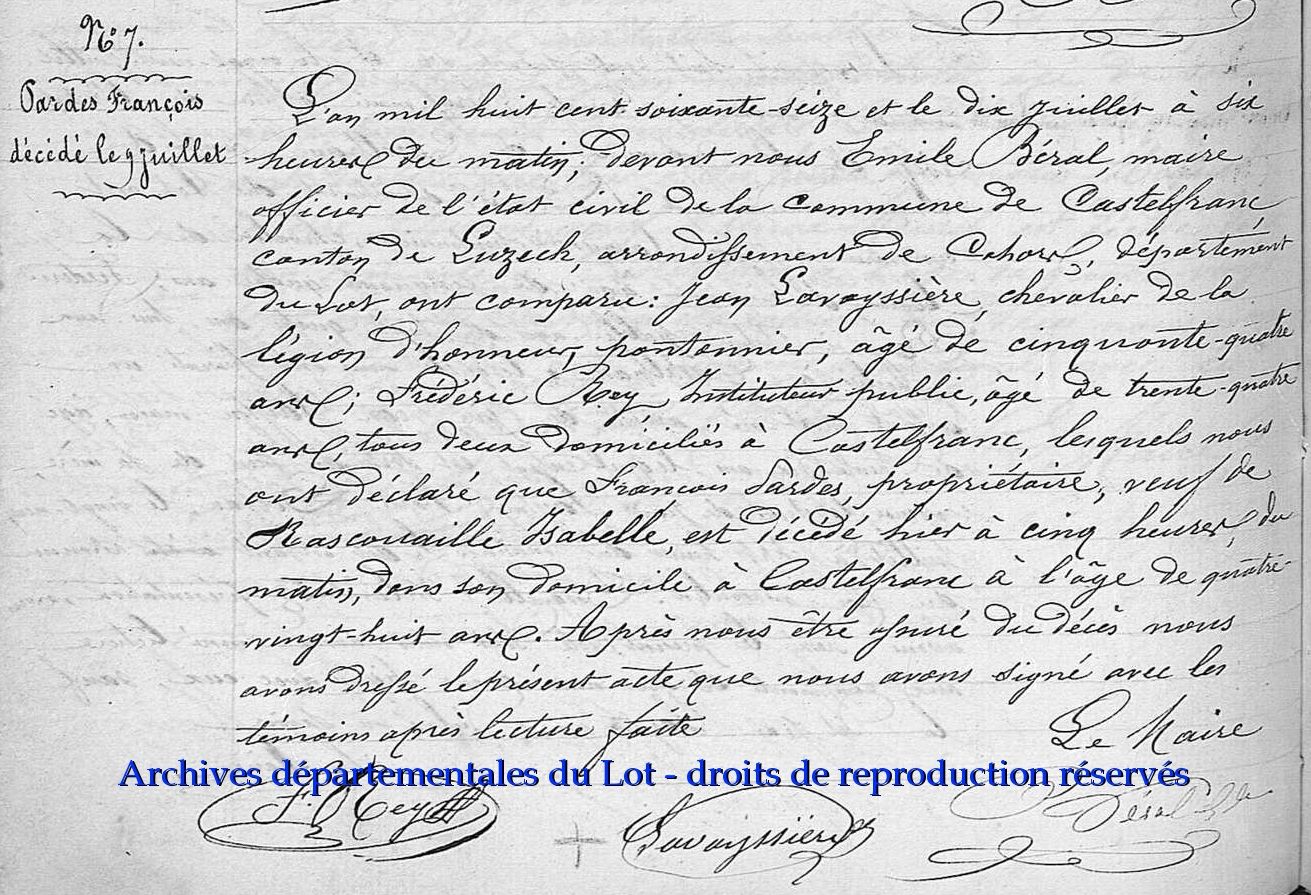 N° 7.
Pardes François
décédé le 9 juillet
L'an mil huit cent soixante-seize et le dix juillet à six
heures du matin, devant nous Emile Béral, maire
officier de l'état civil de la commune de Castelfranc
canton de Luzech, arrondissement de Cahors, département
du Lot, ont comparu: Jean Lavayssière, chevalier de la
légion d'honneur, pontonnier, âgé de cinquante-quatre
ans; Frédéric Rey Instituteur public, âgé de trente-quatre
ans, tous deux domiciliés à Castelfranc, lesquels nous
ont déclaré que François Pardes, propriétaire, veuf de
Rascouaille Isabelle, est décédé hier à cinq heures, du
matin, dans son domicile à Castelfranc à l'âge de quatre-
vingt-huit ans. Après nous être assuré du décès nous
avons dressé le présent acte que nous avons signé avec les
témoins après lecture faite
Le Maire
Archives départementales du Lot - droits de reproduction réservés
F. Rey
Lavayssière
Béral